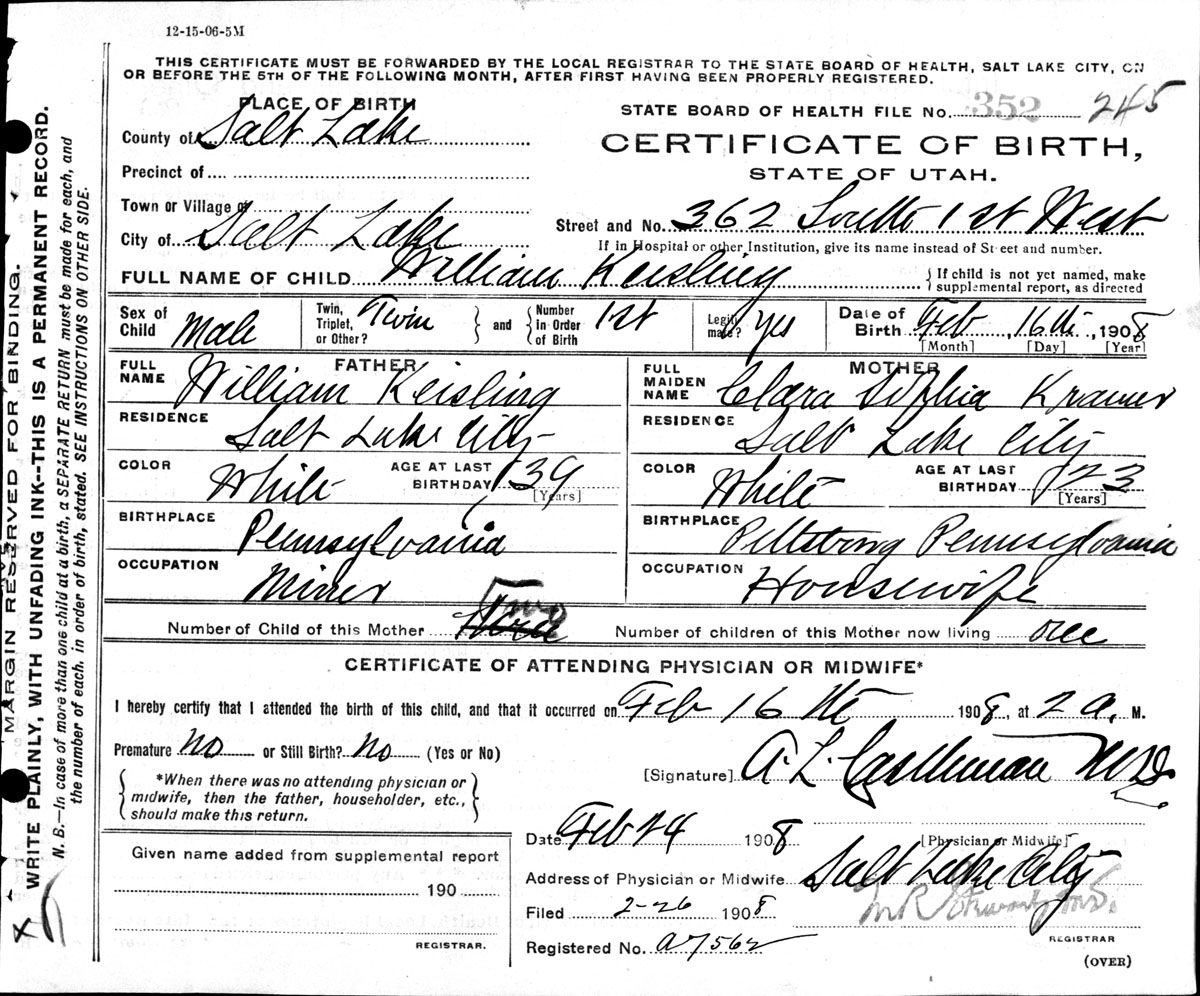 12-15-06-5M
THIS CERTIFICATE MUST BE FORWARDED BY THE LOCAL REGISTRAR TO THE STATE BOARD OF HEALTH, SALT LAKE CITY, ON
OR BEFORE THE 5TH OF THE FOLLOWING MONTH, AFTER FIRST HAVING BEEN PROPERLY REGISTERED.
MARGIN RESERVED FOR BINDING.
WRITE PLAINLY, WITH UNFADING INK--THIS IS A PERMANENT RECORD.
N. B.—In case of more than one child at a birth, a SEPARATE RETURN must be made for each, and
the number of each. in order of birth, stated. SEE INSTRUCTIONS ON OTHER SIDE.
PLACE OF BIRTH
County of Salt Lake
Precinct of
Town or Village of
City of Salt Lake
STATE BOARD OF HEALTH FILE No. 352 245
CERTIFICATE OF BIRTH,
STATE OF UTAH.
Street and No. 362 South 1st West
If in Hospital or other Institution, give its name instead of Street and number.
FULL NAME OF CHILD William Keisling
{ If child is not yet named, make
supplemental report, as directed
Sex of Child Male
Twin, Triplet, or Other? Twin
and
Number in Order of Birth 1st
Legiti mate? Yes
Date of Birth Feb, 16th, 1908
[Month] [Day] [Year]
FATHER
FULL NAME William Keisling
RESIDENCE Salt Lake City
COLOR White AGE AT LAST BIRTHDAY 39
[Years]
BIRTHPLACE Pennsylvania
OCCUPATION Miner
MOTHER
FULL MAIDEN NAME Clara Sophia Kramer
RESIDENCE Salt Lake City
COLOR White AGE AT LAST BIRTHDAY 23
[Years]
BIRTHPLACE Pittsburg Pennsylvania
OCCUPATION Housewife
Number of Child of this Mother Two
Number of children of this Mother now living one
CERTIFICATE OF ATTENDING PHYSICIAN OR MIDWIFE*
I hereby certify that I attended the birth of this child, and that it occurred on Feb 16 th 1908, at 2 a. M.
Premature No or Still Birth? No (Yes or No)
*When there was no attending physician or
midwife, then the father, householder, etc.,
should make this return.
[Signature] A. L. Castleman M.D.
[Physician or Midwife]
Given name added from supplemental report
190
REGISTRAR.
Date Feb 24 1908
Address of Physician or Midwife Salt Lake City
Filed 2-26 1908
M R Stewart M.D.
Registered No. a7562
REGISTRAR
(OVER)